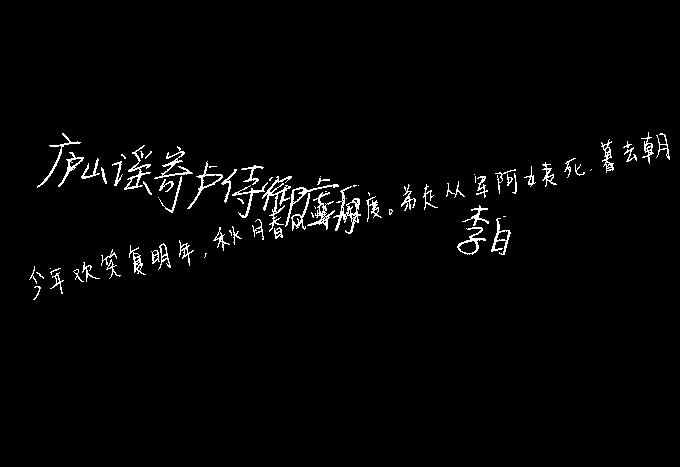 庐山谣寄卢侍御虚舟
今年欢笑复明年,秋月春风等闲度。弟走从军阿姨死.暮去朝
李白